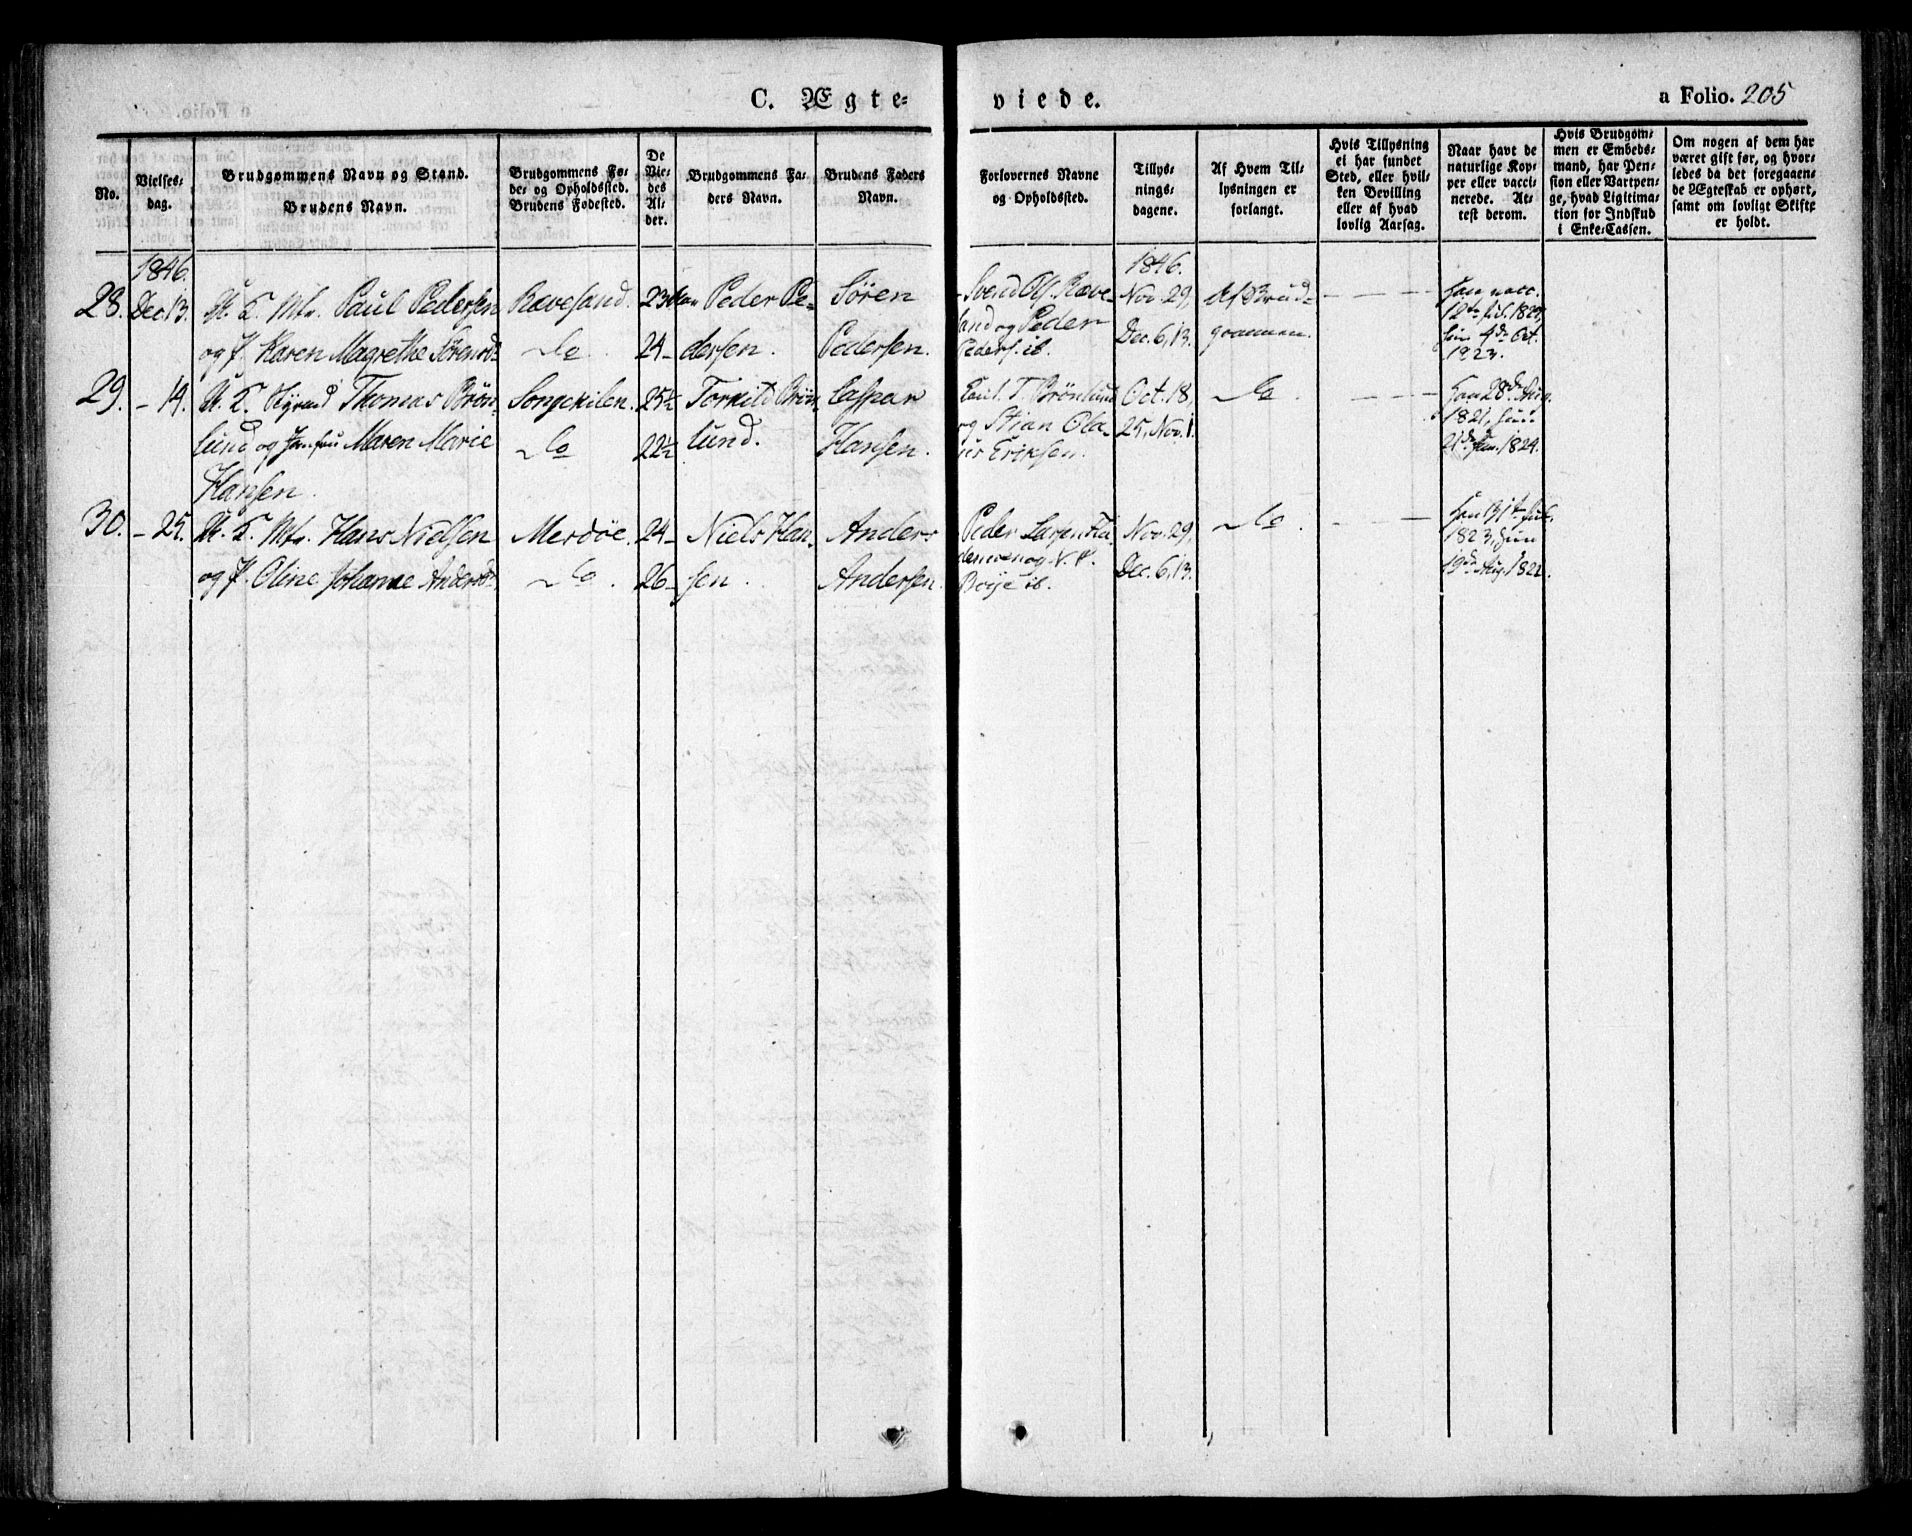 C. Ægte-
viede.
a Folio. 205
No.
Vielses-
dag.
Brudgommens Navn og Stand.
Brudens Navn.
Brudgommens Fø-
de- og Opholdssted.
Brudens Fødested.
De
Vie-
des
Al-
der.
Brudgommens Fa-
ders Navn.
Brudens Faders
Navn.
Forlovernes Navne
og Opholdssted.
Tillys-
nings-
dagene.
Af Hvem Til-
lysningen er
forlangt.
Hvis Tillysning
ei har fundet
Sted, eller hvil-
ken Bevilling
eller af hvad
lovlig Aarsag.
Naar havt de
naturlige Kop-
per eller vacci-
nerede. At-
test derom.
Hvis Brudgom-
men er Embeds-
mand, har Pen-
sion eller Vartpen-
ge, hvad Ligitima-
tion for Indskud
i Enke-Cassen.
Om nogen af dem har
været gift før, og hvor-
ledes da det foregaaen-
de Ægteskab er ophørt,
samt om lovligt Skifte
er holdt.
1846.
28. Dec. 13. U. K. Mtr. Paul Pedersen
og P. Karen Magrethe Sørensd.
Rævesand.
do.
23
24
Peder Pe-
dersen.
Søren
Pedersen.
Svend Ols. Ræve-
sand og Peder
Peders. ib.
1846.
Nov. 29,
Dec. 6, 13.
Af Brud-
gommen.
— — —
Han vacc.
12te Jul. 1823,
hun 4de Oct.
1823.
29. - 19. Thomas Brøn-
lund og Jomfru Maren Marie
Hansen.
Songekilen.
do
25½
22½
Torkild Brøn-
lund.
Caspar
Hansen.
T. Brønlund
og Stian Ola-
us Eriksen.
Oct. 18,
25, Nov. 1.
do
— — —
Han 28de Aug.
1821, hun
21de Jun. 1824.
30. - 25. U. K. Mtr. Hans Nielsen
og P. Oline Johanne Andersd.
Merdøe.
do.
24
26
Niels Han-
sen.
Anders
Andersen.
Peder Larsen
og
ib.
Nov. 29,
Dec. 6, 13.
do.
— — —
Han 31te Jul.
1823, hun
19de Aug. 1822.